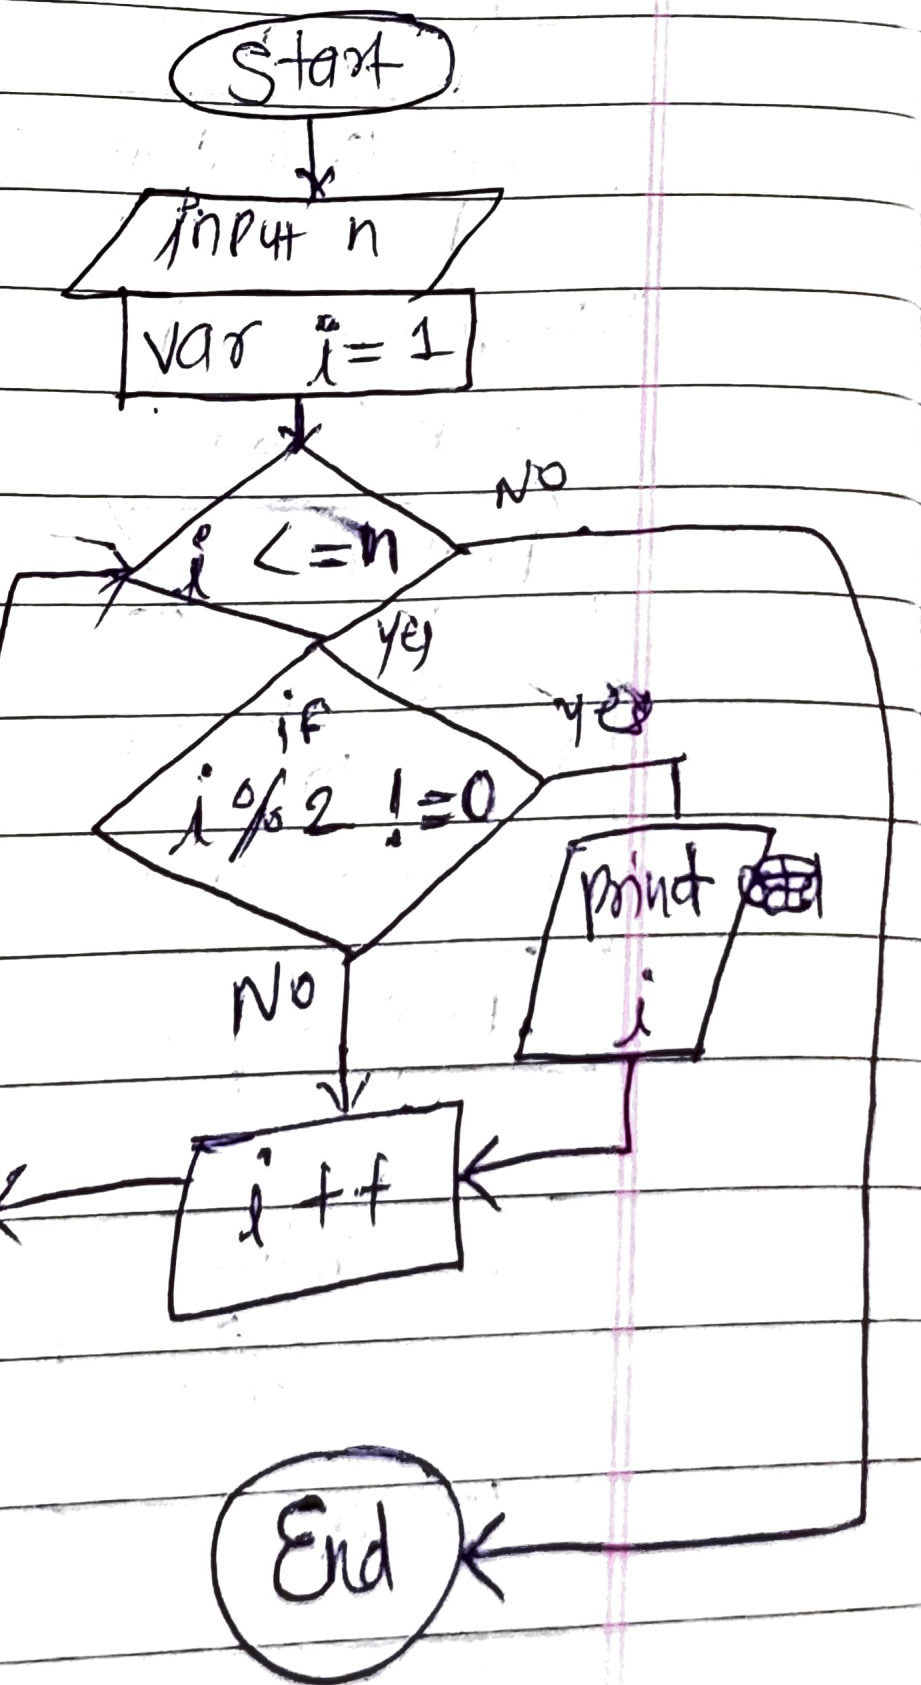 Start
input n
var i = 1
i <= n
NO
yes
if
i % 2 != 0
yes
print
i
NO
i ++
End